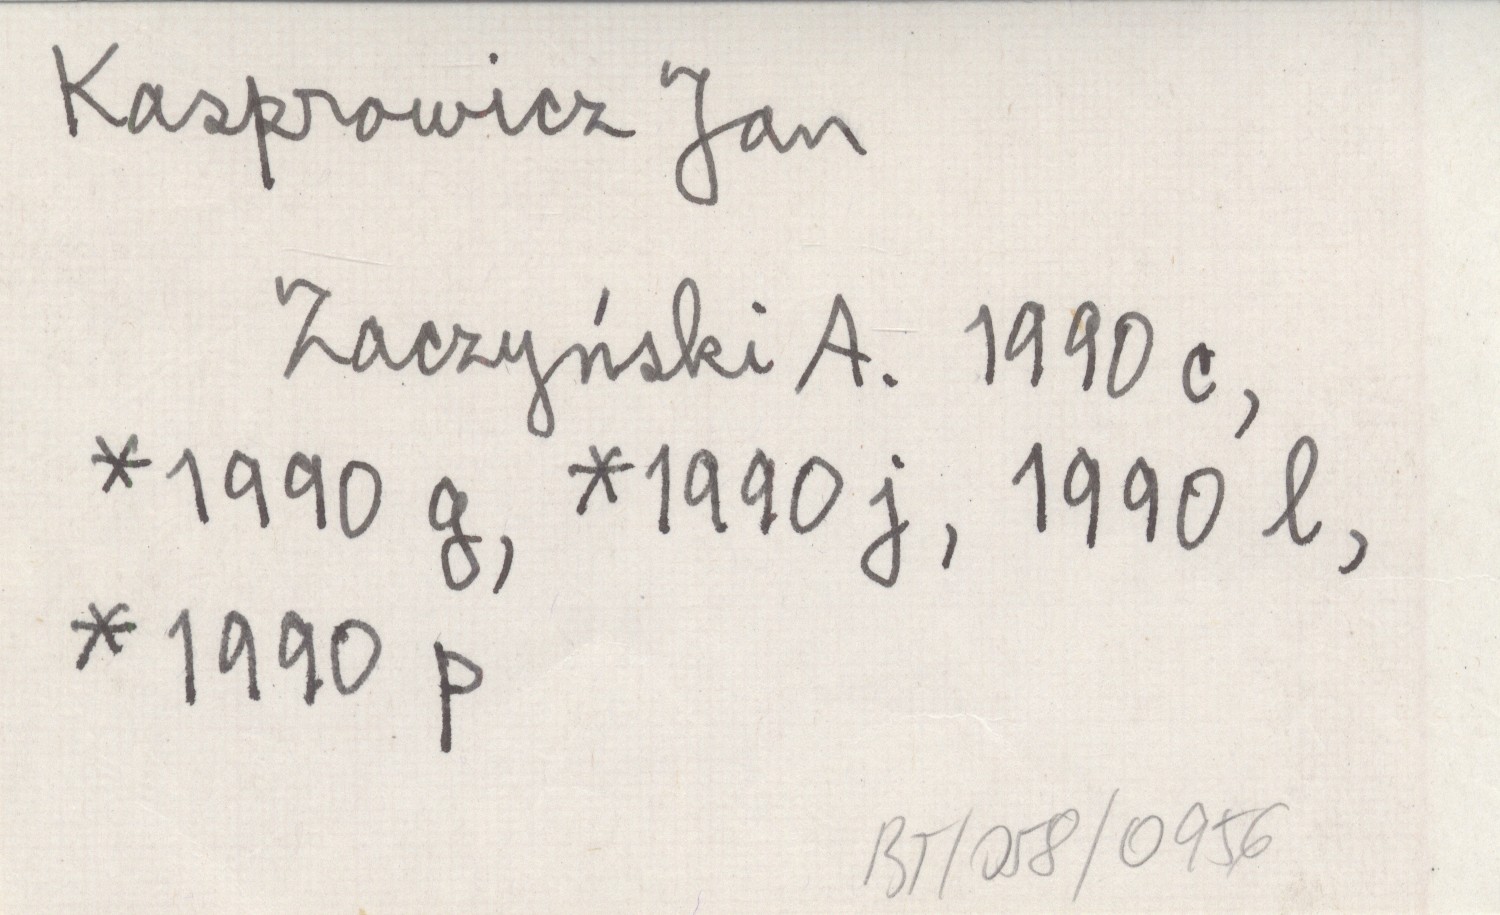 Kasprowicz Jan
Zaczyński A. 1990 c,
*1990 g, *1990 j, 1990 l,
*1990 p
BT/258/0956